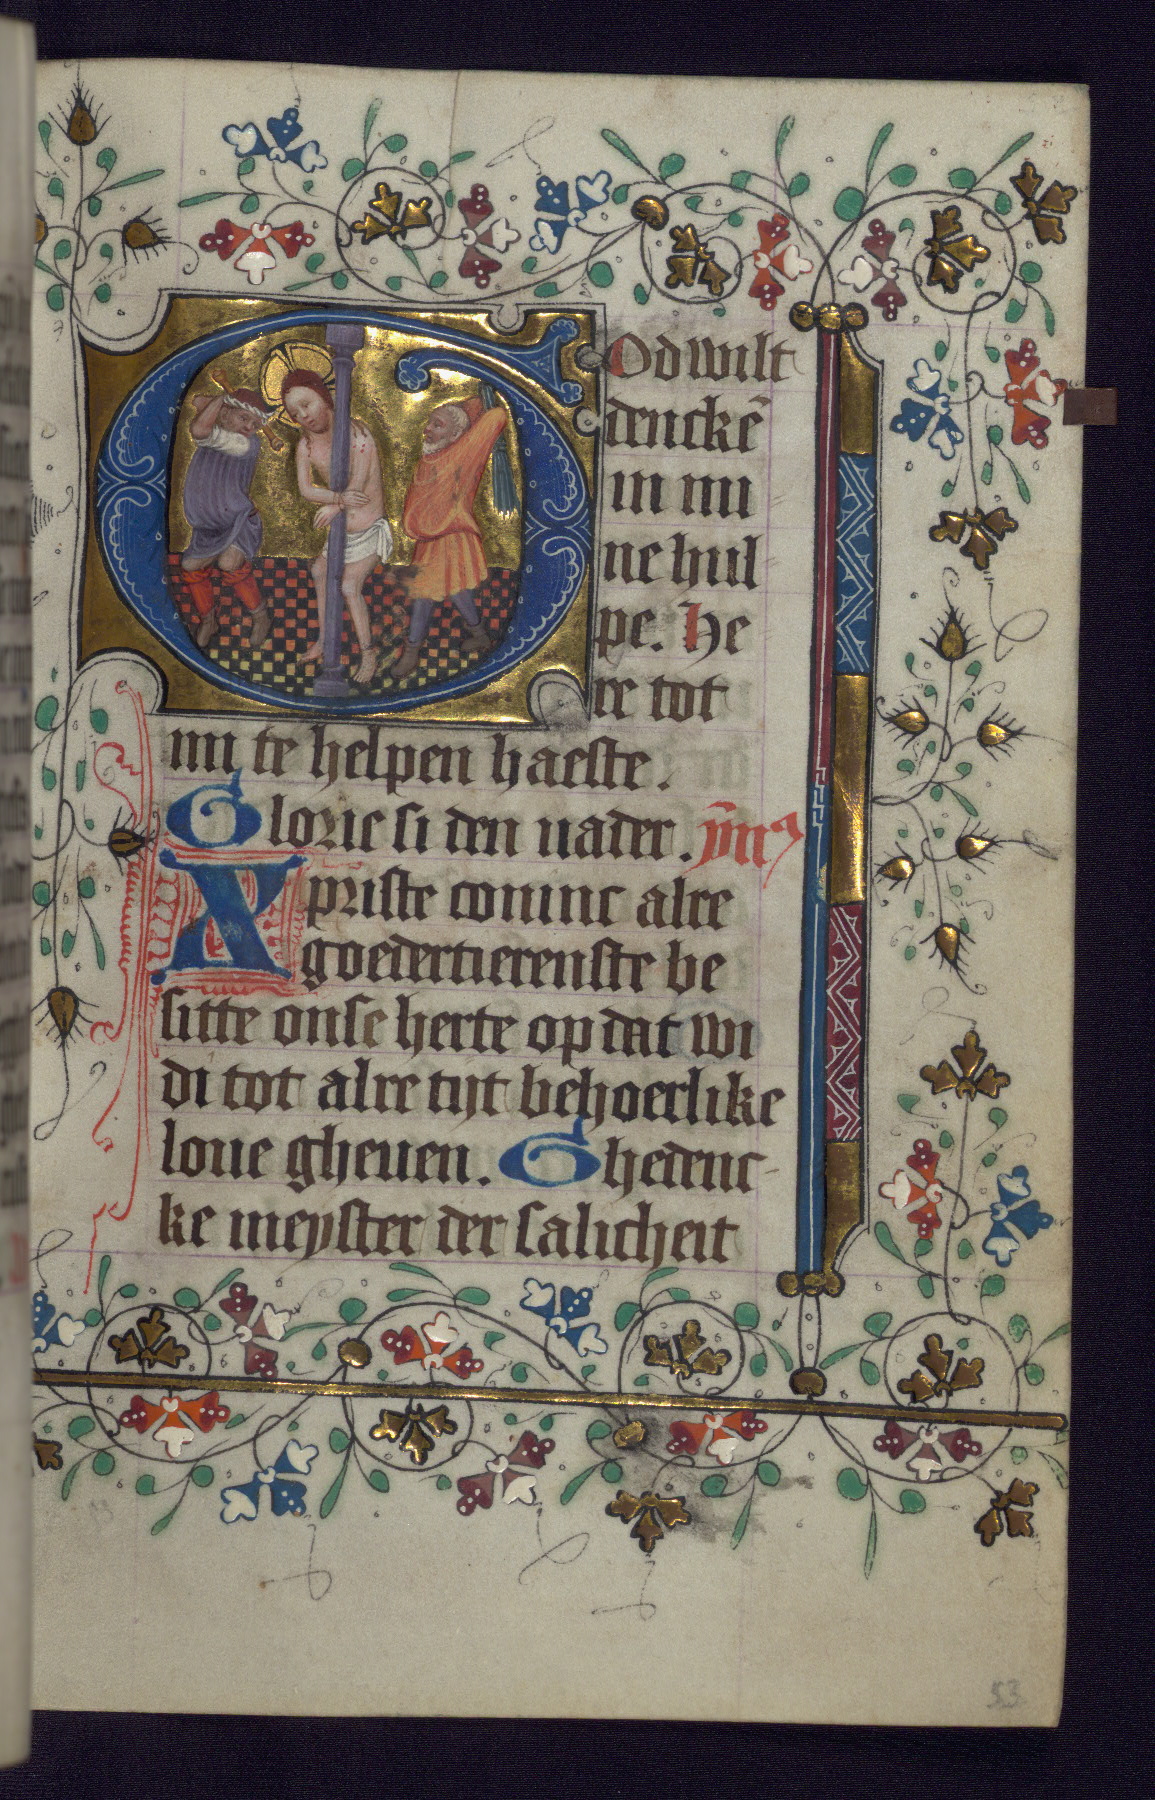 God wilt
denckē
in mi
ne hul
pe. He
re tot
mi te helpen haeste.
Glorie si den uader. ym̄9
Xpriste coninc alre
goedertierenste be
sitte onse herte op dat wi
di tot alre tijt behoerlike
loue gheuen. Ghedenc-
ke meyster der salicheit
53